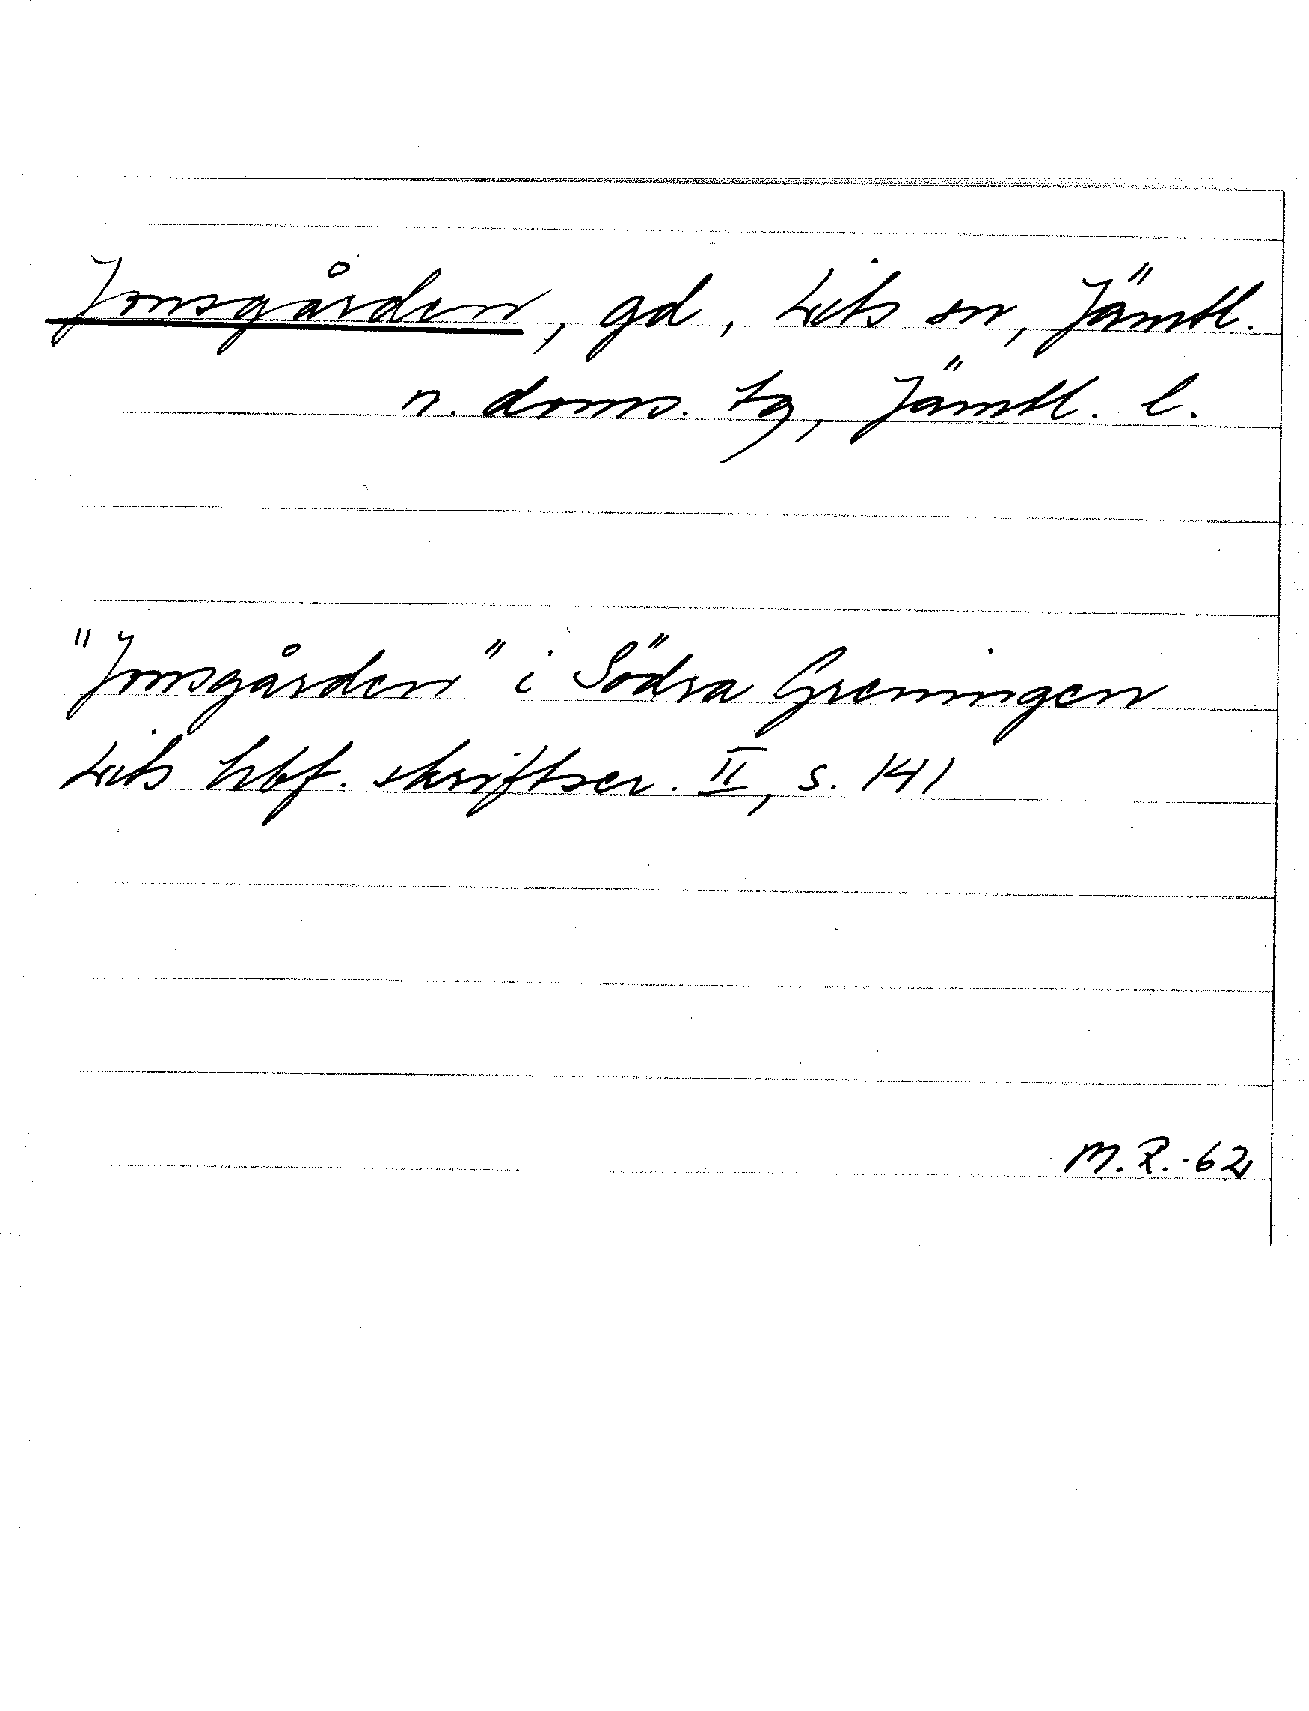 Jonsgården, gd, Lits sn, Jämtl.
n. doms. tg, Jämtl. l.
"Jonsgården" i Södra Greningen
Lits hbf. skriftser. II, s. 141
M.R.-62